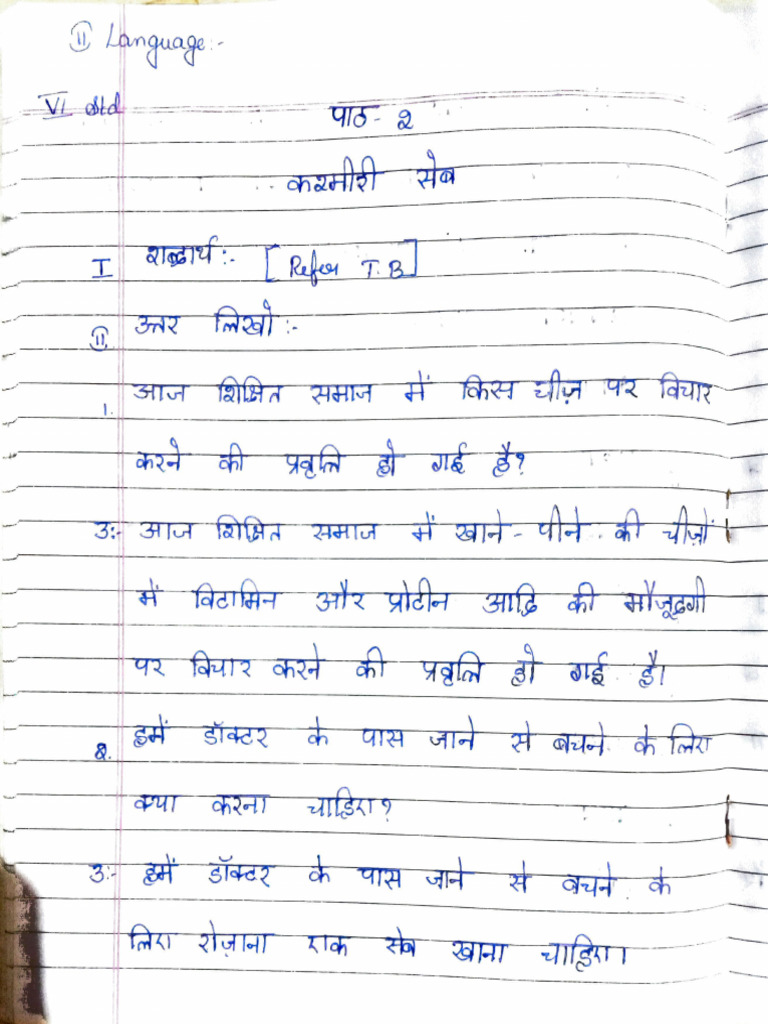 II Language:-
VI std
पाठ - 2
कश्मीरी सेब
I शब्दार्थ :- [Refer T.B]
II उत्तर लिखो :-
1. आज शिक्षित समाज में किस चीज़ पर विचार
करने की प्रवृत्ति हो गई है?
उ:- आज शिक्षित समाज में खाने - पीने की चीज़ों
में विटामिन और प्रोटीन आदि की मौजूदगी
पर विचार करने की प्रवृत्ति हो गई है।
2. हमें डॉक्टर के पास जाने से बचने के लिए
क्या करना चाहिए?
उ:- हमें डॉक्टर के पास जाने से बचने के
लिए रोज़ाना एक सेब खाना चाहिए।